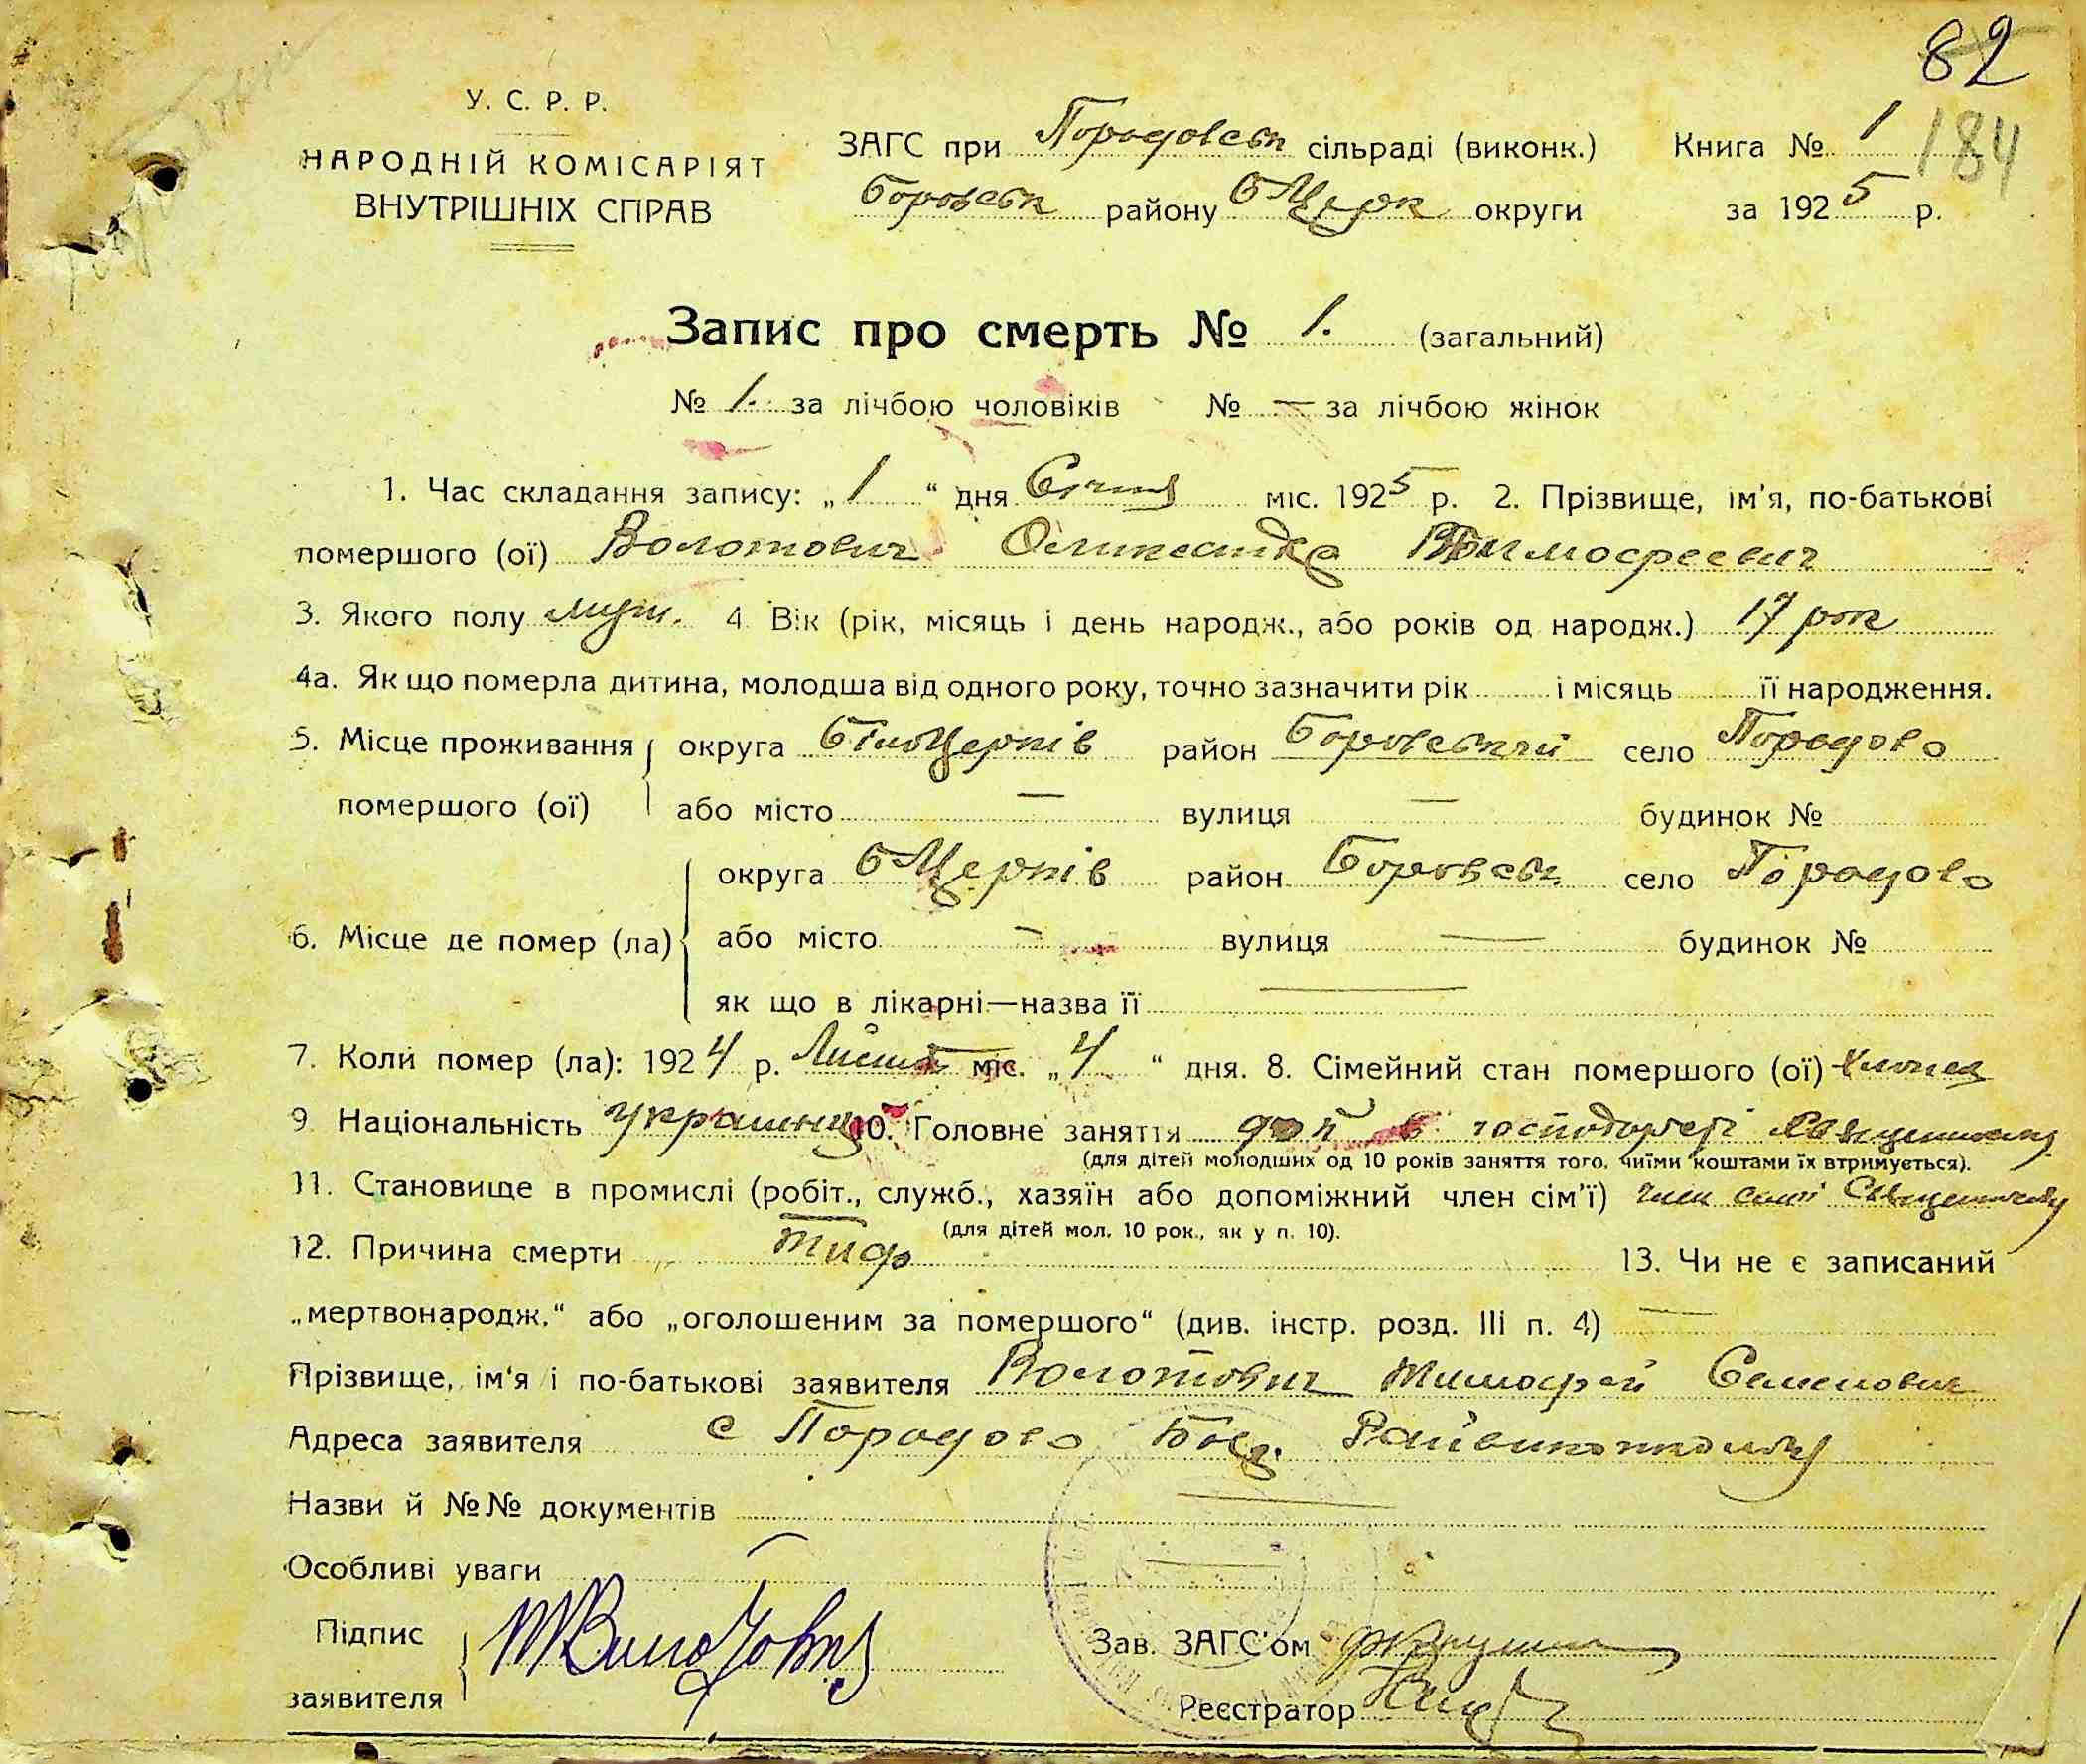 82
184
У. С. Р. Р.
НАРОДНІЙ КОМІСАРІЯТ
ВНУТРІШНІХ СПРАВ
ЗАГС при Городовськ сільраді (виконк.) Книга № 1
району БЦерк округи за 1925 р.
Запис про смерть № 1. (загальний)
№ 1. за лічбою чоловіків № — за лічбою жінок
1. Час складання запису: „1“ дня Січня міс. 1925 р. 2. Прізвище, ім'я, по-батькові
помершого (ої) Волотович Тимофеевич
3. Якого полу муж. 4 Вік (рік, місяць і день народж., або років од народж.) 17 рок
4а. Як що померла дитина, молодша від одного року, точно зазначити рік і місяць її народження.
5. Місце проживання округа БілоЦерків район село Городово
помершого (ої) або місто — вулиця — будинок №
округа БЦерків район село Городово
6. Місце де помер (ла) або місто — вулиця — будинок №
як що в лікарні—назва її —
7. Коли помер (ла): 1924 р. міс. „4“ дня. 8. Сімейний стан помершого (ої) хлопец
9 Національність Украинец 10. Головне заняття в господарстві
(для дітей молодших од 10 років заняття того, чиїми коштами їх втримується).
11. Становище в промислі (робіт., служб., хазяїн або допоміжний член сім'ї) член
(для дітей мол. 10 рок., як у п. 10).
12. Причина смерти тиф 13. Чи не є записаний
„мертвонародж.“ або „оголошеним за помершого“ (див. інстр. розд. III п. 4) —
Прізвище, ім'я і по-батькові заявителя Волотович Тимофей Семенович
Адреса заявителя с Городово Райвиконкому
Назви й №№ документів —
Особливі уваги —
Підпис
заявителя
Зав. ЗАГС'ом
Реєстратор